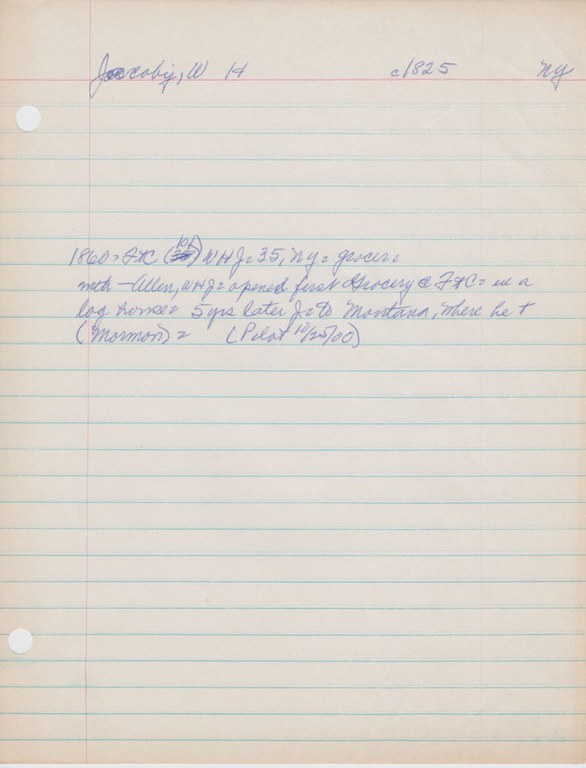 Jacoby, W H c1825 Ny
1860= F*C (101) WHJ= 35, Ny= grocer=
with - Allen, WHJ= opened first Grocery @ F*C= in a
log house= 5 yrs later J= to Montana, where he +
(Mormon) = (Pilot 10/25/00)